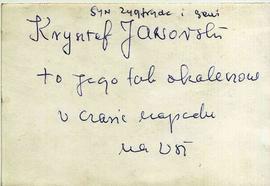 SYN Zygfryda i Geni
Krysztof Jaworski
to jego tak okaleczono
w czasie napadu
na wsi